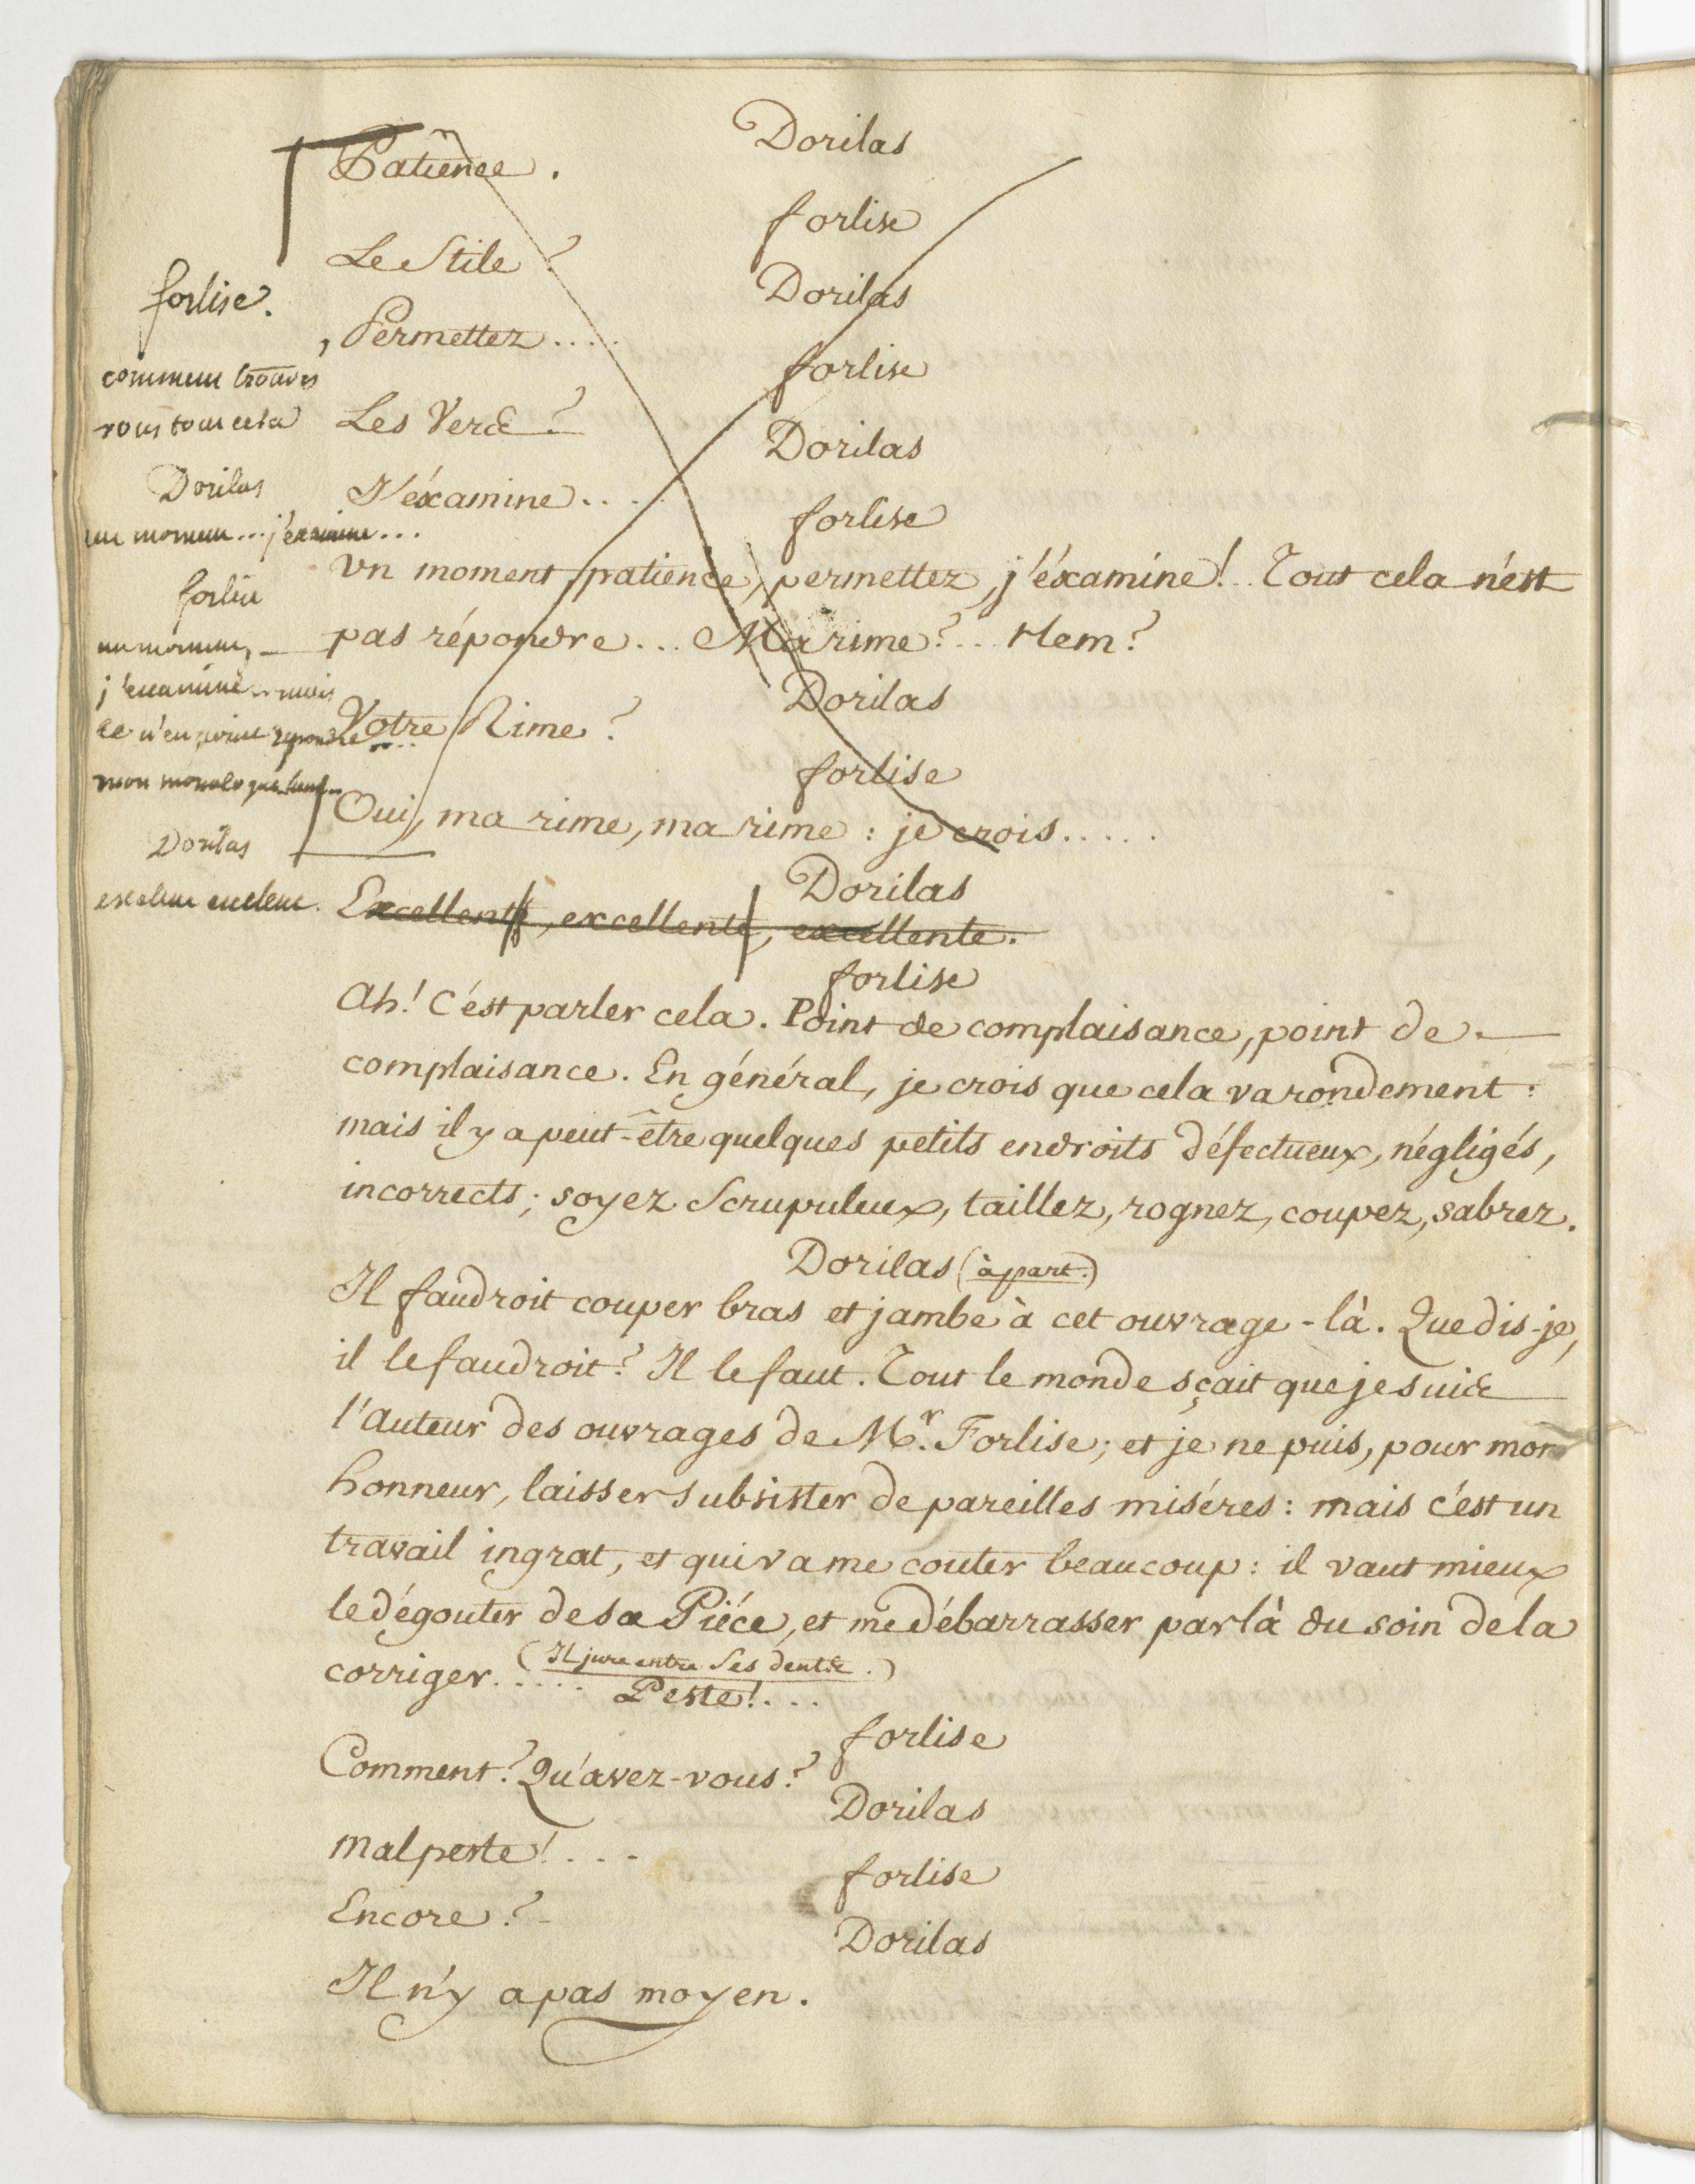 Dorilas
Patience.
forlise
Le Stile?
Dorilas
Permettez....
forlise
Les Vers?
Dorilas
J'éxamine....
forlise
Un moment, patience, permettez, j'éxamine!.. Tout cela n'est
pas répondre... Ma rime?... Hem?
Dorilas
Votre Rime?
forlise
Oui, ma rime, ma rime: je crois.....
Dorilas
Excellente, excellente, excellente.
forlise.
comment trouvés
vous tout cela
Dorilas
un moment... j'examine...
forlise
un moment,
j'examine... mais
ce n'est point repondre
mon monologue
Dorilas
excelent excelent.
forlise
Ah! c'est parler cela. Point de complaisance, point de
complaisance. En général, je crois que cela va rondement:
mais il y a peut-être quelques petits endroits défectueux, négligés,
incorrects; soyez Scrupuleux, taillez, rognez, coupez, sabrez.
Dorilas (à part.)
Il faudroit couper bras et jambe à cet ouvrage-là. Que dis-je,
il le faudroit? Il le faut. Tout le monde sçait que je suis
l'auteur des ouvrages de Mr. Forlise; et je ne puis, pour mon
honneur, laisser subsister de pareilles miséres: mais c'est un
travail ingrat, et qui va me couter beaucoup: il vaut mieux
le dégouter de sa Piéce, et me débarrasser par là du soin de la
corriger..... (Il jure entre Ses dents.)
Peste!...
forlise
Comment? Qu'avez-vous?
Dorilas
Malpeste!...
forlise
Encore?
Dorilas
Il n'y a pas moyen.